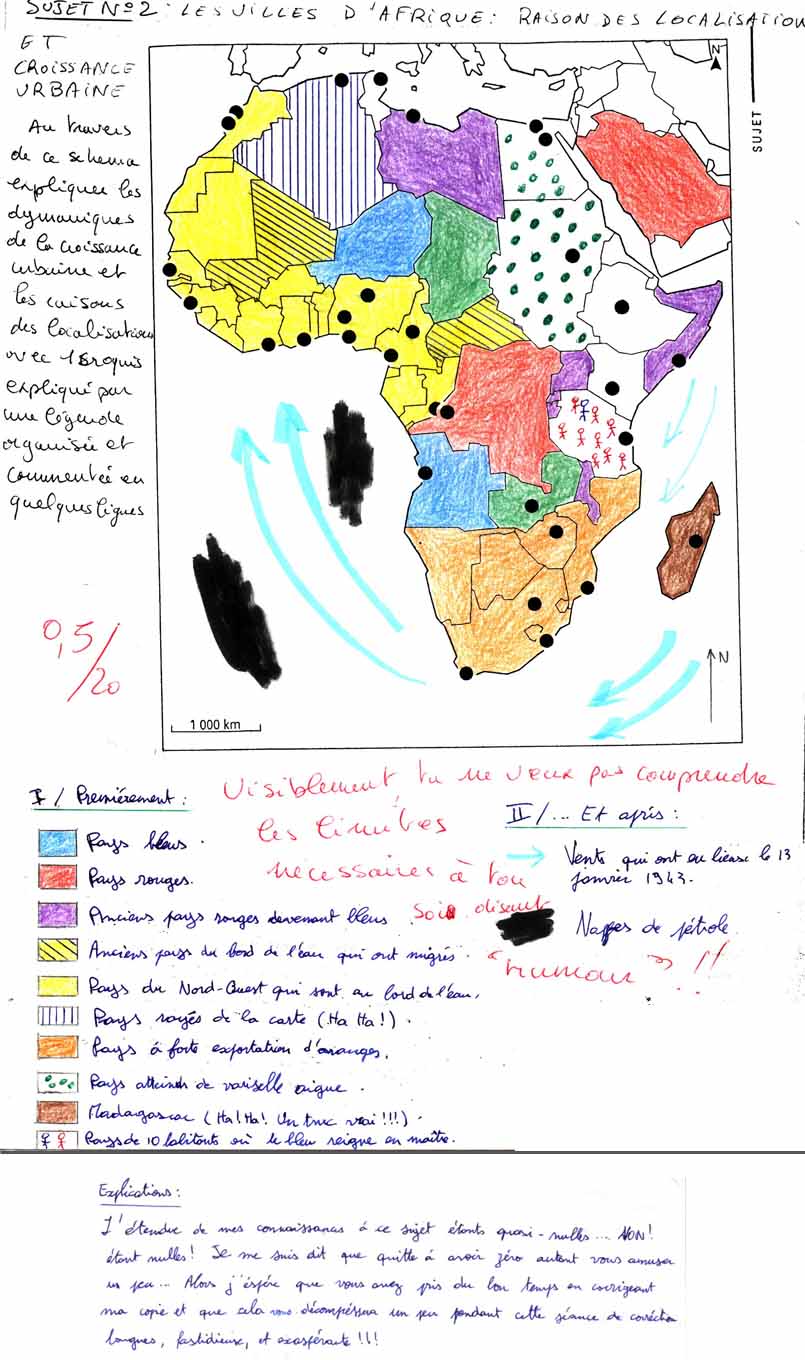 SUJET N°2 : LES VILLES D'AFRIQUE : RAISON DES LOCALISATION
ET
CROISSANCE
URBAINE
Au travers
de ce schema
expliquer les
dymaniques
de la croissance
urbaine et
les raisons
des localisations
avec 1 croquis
expliqué par
une légende
organisée et
commentée en
quelques lignes
N
SUJET
0,5/20
1 000 km
N
Visiblement, tu ne veux pas comprendre
les limites
nécessaires à ton
soi disant
"humour" !!
I / Premièrement :
Pays bleus.
Pays rouges.
Anciens pays rouges devenant bleus
Anciens pays du bord de l'eau qui ont migrés.
Pays du Nord-Ouest qui sont au bord de l'eau.
Pays rayés de la carte (Ha Ha!).
Pays à forte exportation d'oranges.
Pays atteints de variselle aigue.
Madagascar (Ha! Ha! Un truc vrai!!!).
Pays de 10 habitants où le bleu reigne en maître.
II / ... Et après :
Vents qui ont eu lieu le 13
janvier 1943.
Nappes de pétrole.
Explications :
L'étendue de mes connaissances à ce sujet étants quasi-nulles... NON!
étant nulles! Je me suis dit que quitte à avoir zéro autant vous amuser
un peu... Alors j'éspére que vous avez pris du bon temps en corrigeant
ma copie et que cela vous décompréssera un peu pendant cette séance de corréction
longues, fastidieuse, et exaspérante!!!